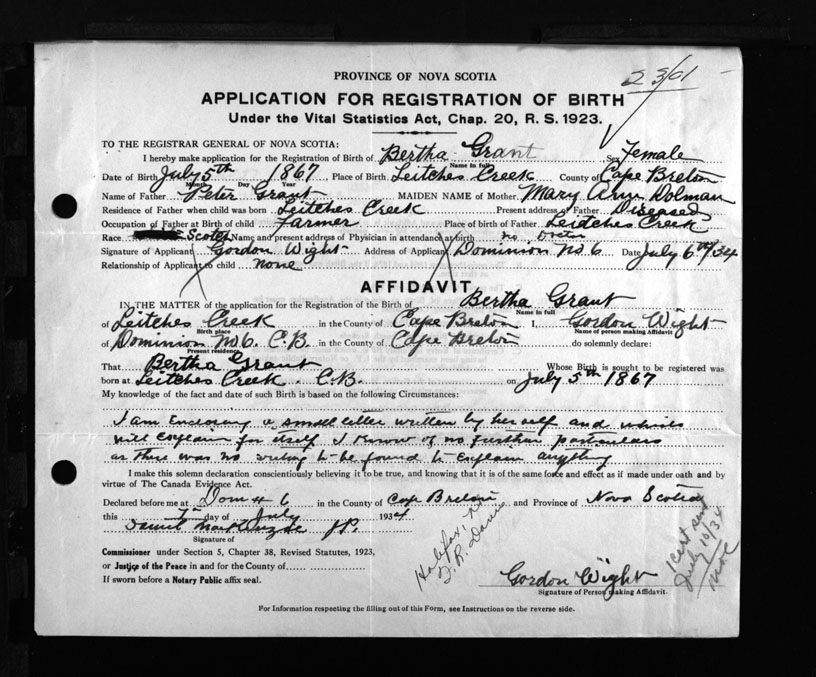 PROVINCE OF NOVA SCOTIA
2301
APPLICATION FOR REGISTRATION OF BIRTH
Under the Vital Statistics Act, Chap. 20, R. S. 1923.
TO THE REGISTRAR GENERAL OF NOVA SCOTIA:
I hereby make application for the Registration of Birth of Bertha Grant Sex Female
Name in full
Date of Birth July 5th 1867 Place of Birth Leitches Creek County of Cape Breton
Month Day Year
Name of Father Peter Grant MAIDEN NAME of Mother Mary Ann Dolman
Residence of Father when child was born Leitches Creek Present address of Father Diseased
Occupation of Father at Birth of child Farmer Place of birth of Father Leitches Creek
Race Scotch Name and present address of Physician in attendance at birth no Doctor
Signature of Applicant Gordon Wight Address of Applicant Dominion No 6 Date July 6th/34
Relationship of Applicant to child none
AFFIDAVIT
IN THE MATTER of the application for the Registration of the Birth of Bertha Grant
Name in full
of Leitches Creek in the County of Cape Breton I, Gordon Wight
Birth place Name of person making Affidavit
of Dominion No 6. C.B. in the County of Cape Breton do solemnly declare:
Present residence
That Bertha Grant Whose Birth is sought to be registered was
born at Leitches Creek. C.B. on July 5th 1867
My knowledge of the fact and date of such Birth is based on the following Circumstances:
I am Enclosing a small letter written by her self and which
will Explain for itself I know of no further particulars
as there was no writing to be found to Explain anything
I make this solemn declaration conscientiously believing it to be true, and knowing that it is of the same force and effect as if made under oath and by
virtue of The Canada Evidence Act.
Declared before me at Dom # 6 in the County of Cape Breton and Province of Nova Scotia
this 7th day of July 1934
JP.
Signature of
Commissioner under Section 5, Chapter 38, Revised Statutes, 1923,
or Justice of the Peace in and for the County of
If sworn before a Notary Public affix seal.
Halifax, N.S.
Cert sent
July 10/34
Gordon Wight
Signature of Person making Affidavit.
For Information respecting the filling out of this Form, see Instructions on the reverse side.